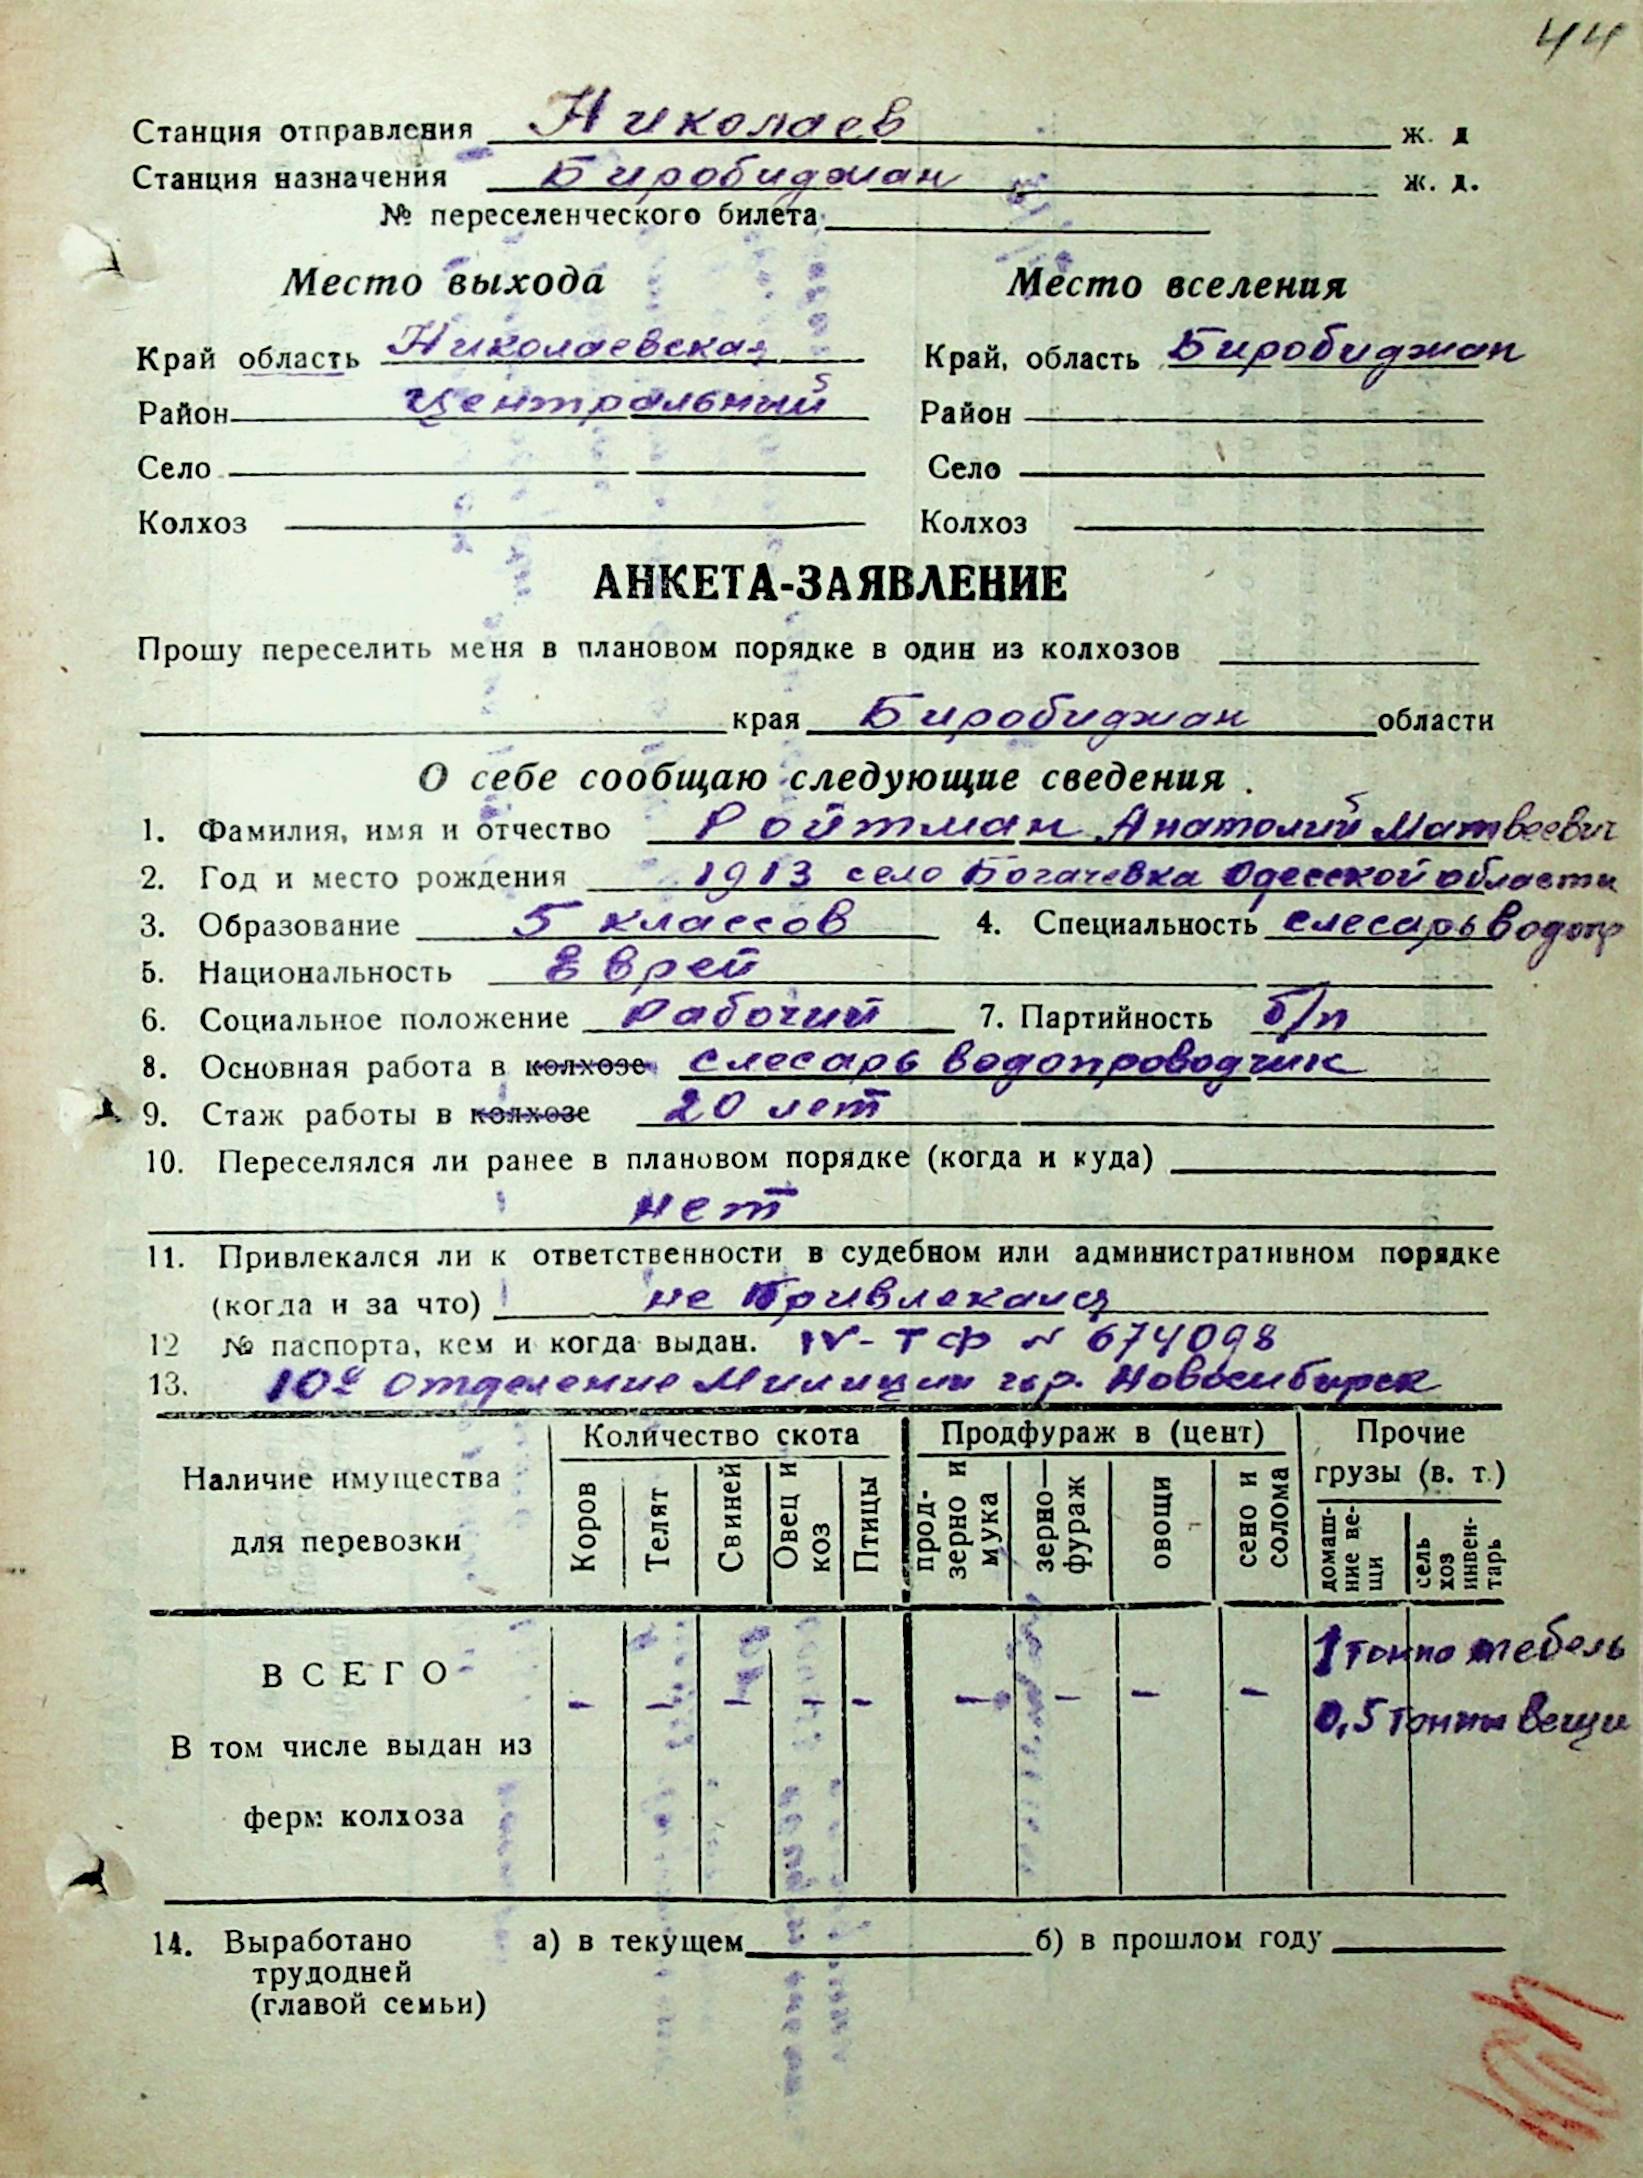 44
Станция отправления Николаев ж. д
Станция назначения Биробиджан ж. д.
№ переселенческого билета
Место выхода Место вселения
Край область Николаевская Край, область Биробиджан
Район Центральный Район
Село Село
Колхоз Колхоз
АНКЕТА-ЗАЯВЛЕНИЕ
Прошу переселить меня в плановом порядке в один из колхозов
края Биробиджан области
О себе сообщаю следующие сведения.
1. Фамилия, имя и отчество Ройтман Анатолий Матвеевич
2. Год и место рождения 1913 село Богачевка Одесской области
3. Образование 5 классов 4. Специальность слесарь водопр
5. Национальность Еврей
6. Социальное положение Рабочий 7. Партийность б/п
8. Основная работа в колхозе слесарь водопроводчик
9. Стаж работы в колхозе 20 лет
10. Переселялся ли ранее в плановом порядке (когда и куда)
нет
11. Привлекался ли к ответственности в судебном или административном порядке
(когда и за что) не Привлекался
12 № паспорта, кем и когда выдан. IV-ТФ N 674098
13. 10е отделение Милиции гор. Новосибирск
Наличие имущества для перевозки
Количество скота Продфураж в (цент) Прочие грузы (в. т.)
Коров Телят Свиней Овец и коз Птицы прод-зерно и мука зерно-фураж овощи сено и солома домаш-ние ве-щи сель хоз инвен-тарь
ВСЕГО - - - - - - - - - 1 тонна мебель
0,5 тонны вещи
В том числе выдан из
ферм колхоза
14. Выработано а) в текущем б) в прошлом году
трудодней
(главой семьи)